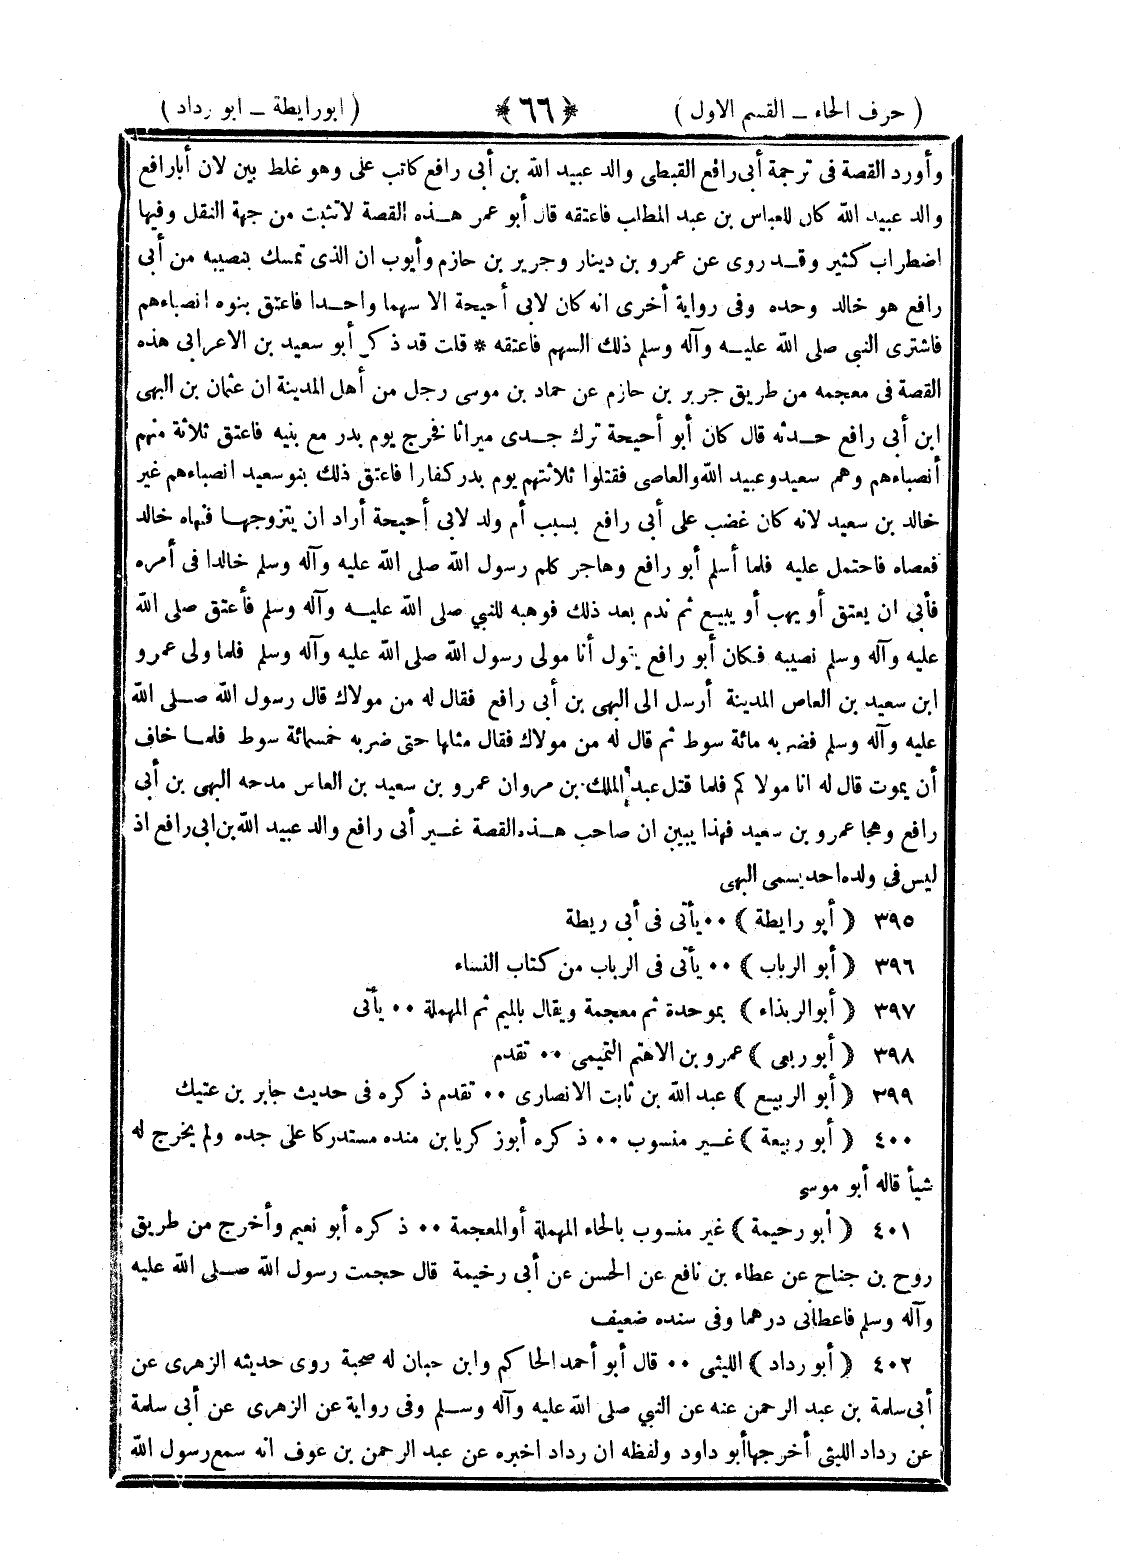 ( حرف الحاء ــ القسم الاول ) ﴿٦٦﴾ ( ابورايطة ــ ابو رداد )
وأورد القصة فى ترجمة أبى رافع القبطى والد عبيد الله بن أبى رافع كاتب على وهو غلط بين لان أبارافع
والد عبيد الله كان للعباس بن عبد المطلب فاعتقه قال أبو عمر هـذه القصة لاتثبت من جهة النقل وفيها
اضطراب كثير وقـد روى عن عمرو بن دينار وجرير بن حازم وأيوب ان الذى تمسك بنصيبه من أبى
رافع هو خالد وحده وفى رواية أخرى انه كان لابى أحيحة الا سهما واحـدا فاعتق بنوه انصباءهم
فاشترى النبي صلى الله عليـه وآله وسلم ذلك السهم فاعتقه * قلت قد ذكر أبو سعيد بن الاعرابى هذه
القصة فى معجمه من طريق جرير بن حازم عن حماد بن موسى رجل من أهل المدينة ان عثمان بن البهى
ابن أبى رافع حـدثه قال كان أبو أحيحة ترك جـدى ميراثا فخرج يوم بدر مع بنيه فاعتق ثلاثة منهم
أنصباءهم وهم سعيد وعبيد الله والعاصى فقتلوا ثلاثتهم يوم بدر كفارا فاعتق ذلك بنو سعيد انصباءهم غير
خالد بن سعيد لانه كان غضب على أبى رافع بسبب أم ولد لابى أحيحة أراد ان يتزوجهـا فنهاه خالد
فعصاه فاحتمل عليه فلما أسلم أبو رافع وهاجر كلم رسول الله صلى الله عليه وآله وسلم خالدا فى أمره
فأبى ان يعتق أو يهب أو يبيـع ثم ندم بعد ذلك فوهبه للنبي صلى الله عليـه وآله وسلم فأعتق صلى الله
عليه وآله وسلم نصيبه فكان أبو رافع يقول أنا مولى رسول الله صلى الله عليه وآله وسلم فلما ولى عمرو
ابن سعيد بن العاص المدينة أرسل الى البهى بن أبى رافع فقال له من مولاك قال رسول الله صـلى الله
عليه وآله وسلم فضر به مائة سوط ثم قال له من مولاك فقال مثلها حتى ضربه خمسمائة سوط فلمـا خاف
أن يموت قال له انا مولا كم فلما قتل عبد الملك بن مروان عمرو بن سعيد بن العاس مدحه البهى بن أبى
رافع وهجا عمرو بن سعيد فهذا يبين ان صاحب هـذه القصة غـير أبى رافع والد عبيد الله بن ابى رافع اذ
ليس فى ولده احد يسمى البهى
٣٩٥ ( أبو رايطة ) ٠٠ يأتى فى أبى ريطة
٣٩٦ ( أبو الرباب ) ٠٠ يأتى فى الرباب من كتاب النساء
٣٩٧ ( أبو الربذاء ) بموحدة ثم معجمة ويقال بالميم ثم المهملة ٠٠ يأتى
٣٩٨ ( أبو ربعى ) عمرو بن الاهتم التميمى ٠٠ تقدم
٣٩٩ ( أبو الربيع ) عبد الله بن ثابت الانصارى ٠٠ تقدم ذكره فى حديث جابر بن عتيك
٤٠٠ ( أبو ربيعة ) غـير منسوب ٠٠ ذكره أبو زكريا بن منده مستدركا على جده ولم يخرج له
شيأ قاله أبو موسى
٤٠١ ( أبو رحيمة ) غير منسوب بالحاء المهملة أو المعجمة ٠٠ ذكره أبو نعيم وأخرج من طريق
روح بن جناح عن عطاء بن نافع عن الحسن عن أبى رخيمة قال حجمت رسول الله صـلى الله عليه
وآله وسلم فاعطانى درهما وفى سنده ضعيف
٤٠٢ ( أبو رداد ) الليثى ٠٠ قال أبو أحمد الحاكم وابن حبان له صحبة روى حديثه الزهرى عن
أبى سلمة بن عبد الرحمن عنه عن النبي صلى الله عليه وآله وسـلم وفى رواية عن الزهرى عن أبى سلمة
عن رداد الليثى أخرجها أبو داود ولفظه ان رداد اخبره عن عبد الرحمن بن عوف انه سمع رسول الله